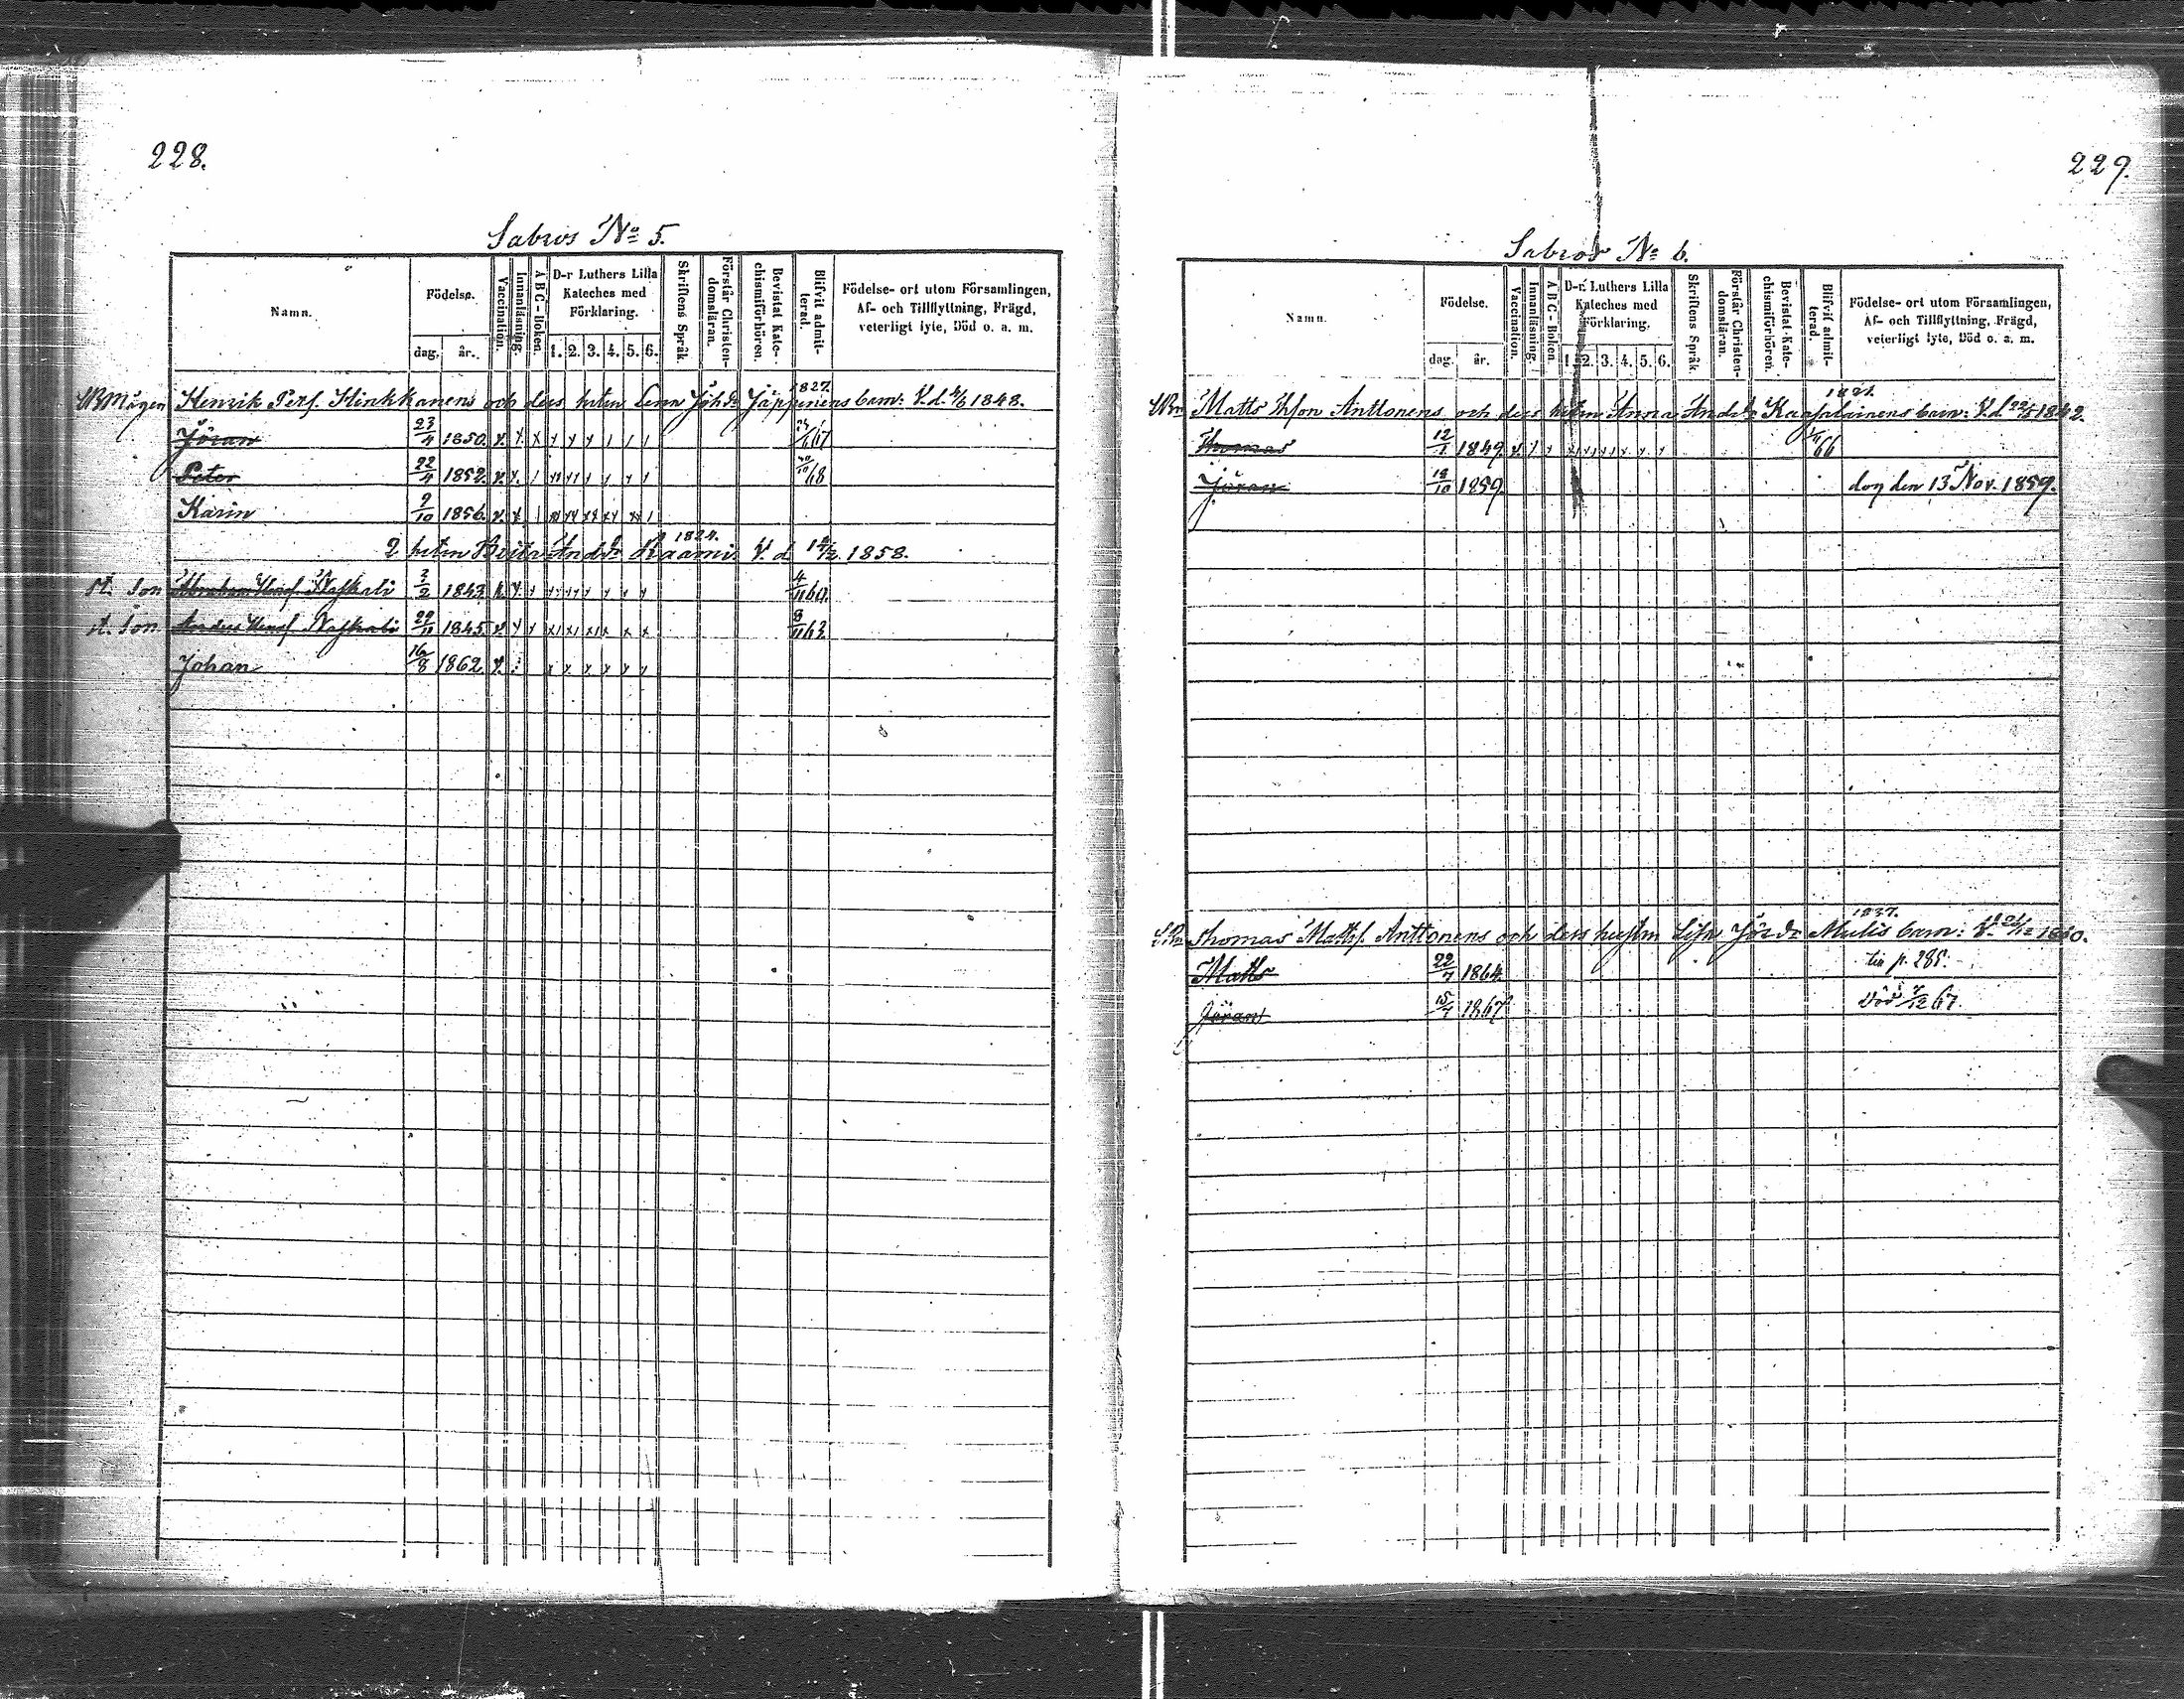 228.
Sabros No 5.
Namn.
Födelse.
dag. år.
Vaccination.
Innanläsning.
A B C - Boken.
D-r Luthers Lilla
Kateches med
Förklaring.
1. 2. 3. 4. 5. 6.
Skriftens Språk.
Förstår Christen-
domsläran.
Bevistat Kate-
chismiförhören.
Blifvit admit-
terad.
Födelse- ort utom Församlingen,
Af- och Tillflyttning, Frägd,
veterligt lyte, Död o. a. m.
1827.
Mågen Henrik Persf. Hinkkanens och dess hustru Lena Jöhdr Jäppinens barn: V. d. 1848.
Jöran 23/4 1850. x x x x x x / / / 67
Peter 22/4 1852. x x / x x / 68
Karin 9/10 1856. x x /
1824.
2 hustrun Andr Kaami V. d. 1858.
st. Son Abraham Henrsf. Naskali 3/2 1843. 4/11 60
st. Son Anders Henrsf Naskali 29/11 1845. 8/11 63
Johan 16/8 1862. x x x x x x x
229.
Sabros No 6.
Namn.
Födelse.
dag. år.
Vaccination.
Innanläsning.
A B C - Boken.
D-r Luthers Lilla
Kateches med
Förklaring.
1. 2. 3. 4. 5. 6.
Skriftens Språk.
Förstår Christen-
domsläran.
Bevistat Kate-
chismiförhören.
Blifvit admit-
terad.
Födelse- ort utom Församlingen,
Af- och Tillflyttning, Frägd,
veterligt lyte, Död o. a. m.
Matts Anttonens och dess hustru Anna Andsdr barn: V. d. 1842.
Thomas 12/1 1849. 66
Jöran 18/10 1859. dog den 13 Nov. 1859.
1837.
Thomas Mattsf. Anttonens och dess hustru Lisa Jörsdr Mulis barn: V. 1860.
Matts 22/7 1864. p. 285.
Jöran 15/7 1867 död 7/12 67.